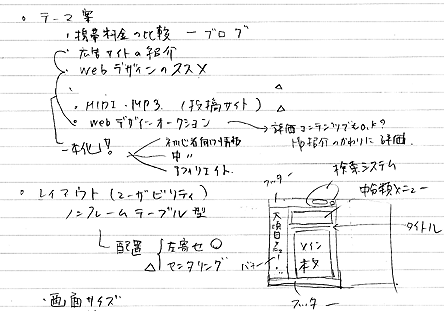 テーマ案
・携帯料金の比較 ー ブログ
・広告サイトの紹介
・Webデザインのススメ
△
・MIDI・MP3 (投稿サイト) △
・Webデザインオークション → 評価コンテンツでもOK?
HP紹介のかわりに 評価
一本化!?
初心者向け情報
中 〃
アフィリエイト
レイアウト (ユーザビリティ)
ノンフレームテーブル型
配置 左寄せ ○
△ センタリング
検索システム
中分類メニュー
タイトル
大項目メニュー
メイン
本文
バナー
フッター
・画面サイズ